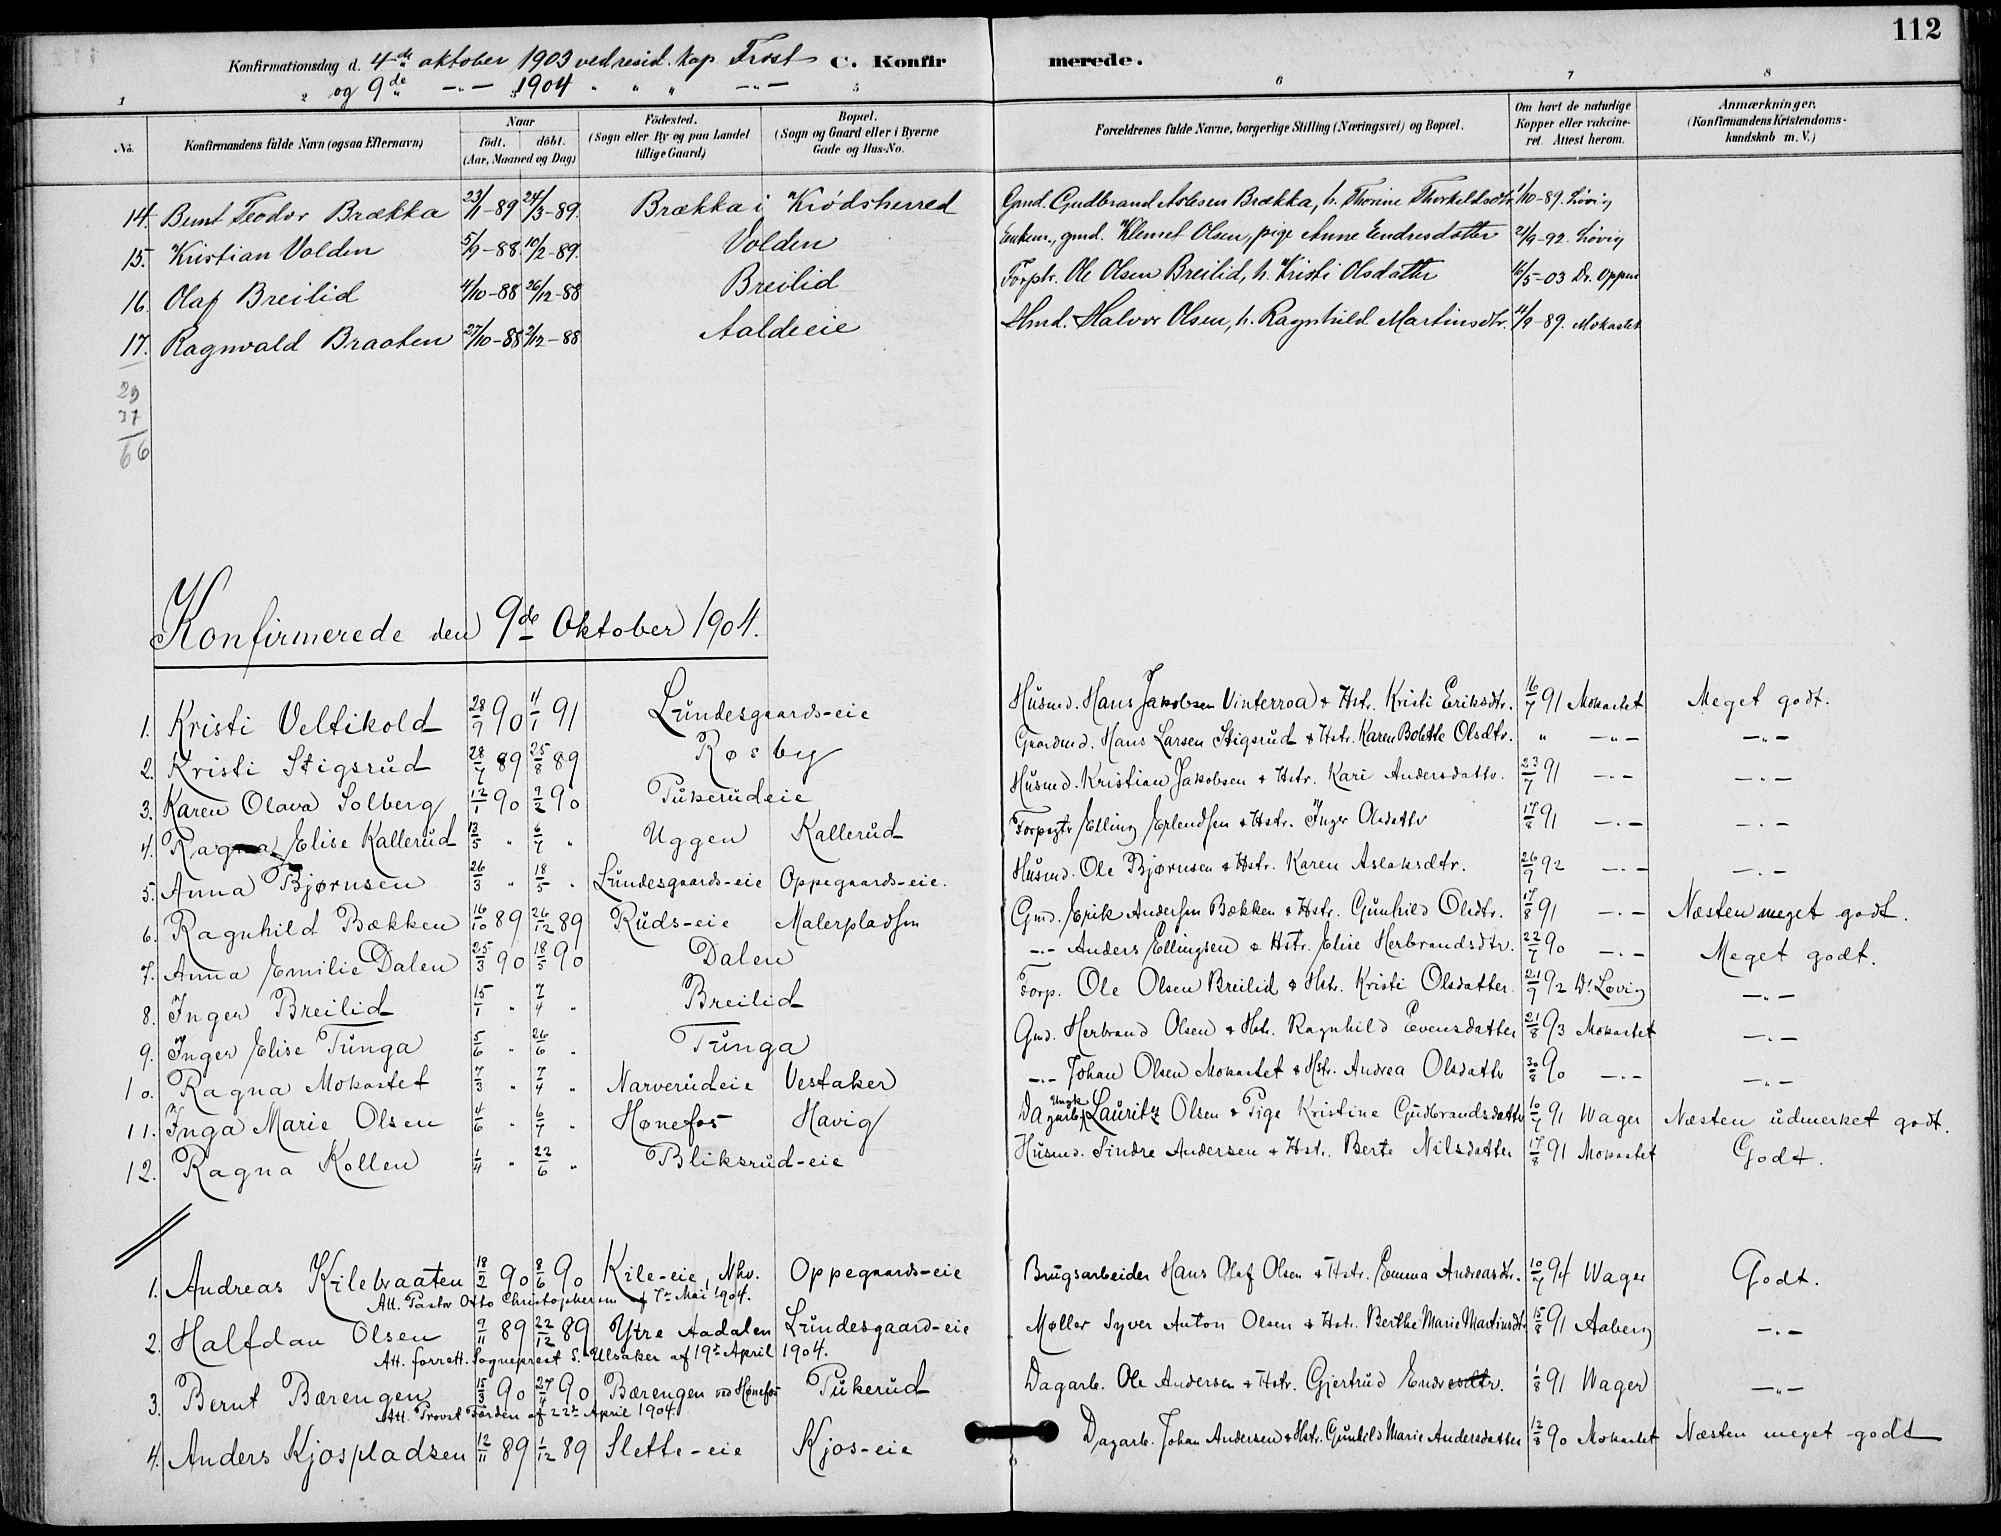 112
Konfirmationsdag d. 4de oktober 1903 ved resid. kap Frost C. Konfirmerede.
og 9de -"- 1904 " " " -"-
1 2 3 5 6 7 8
No. Konfirmandens fulde Navn (ogsaa Efternavn) Naar födt. döbt. (Aar, Maaned og Dag) Födested. (Sogn eller By og paa Landet tillige Gaard) Bopæl. (Sogn og Gaard eller i Byerne Gade og Hus-No. Forældrenes fulde Navne, borgerlige Stilling (Næringsvei) og Bopæl. Om havt de naturlige Kopper eller vakcineret. Attest herom. Anmærkninger. (Konfirmandens Kristendomskundskab m. V.)
14. Bernt Teodor Brækka 23/11-89 24/3-89. Brækka i Krødsherred Gmd. Gudbrand Aslesen Brækka, h. Thorine Thorkeldsdtr. 1/10-89. Løvig
15. Kristian Volden 5/9-88. 10/2-89. Volden Enkem., gmd. Klemet Olsen, pige Anne Endresdatter 21/9-92. Løvig
16. Olaf Breilid 4/10-88 26/12-88 Breilid Forptr. Ole Olsen Breilid, h. Kristi Olsdatter 16/5-03 Dr. Oppen
17. Ragnvald Braaten 27/10-88 2/12-88 Aaldeeie Hmd. Halvor Olsen, h. Ragnhild Martinsdtr. 11/9-89. Mokastet
29
37
66
Konfirmerede den 9de Oktober 1904.
1. Kristi Veltikold 28/9 90 4/1 91 Lundesgaards-eie Husmd. Hans Jakobsen Vinterroa & Hstr. Kristi Eriksdtr. 16/7 91 Mokastet Meget godt.
2. Kristi Stigsrud 28/7 89 25/8 89 Røsby Gaardmd. Hans Larsen Stigsrud & Hstr. Karen Bolette Olsdtr. " -"- -"-
3. Karen Olava Solberg 12/1 90 9/2 90 Tukerudeie Husmd. Kristian Jakobsen & Hstr. Kari Andersdattr. 23/7 91 -"- -"-
4. Ragna Elise Kallerud 13/5 " 6/7 " Uggen Kallerud Forpagtr Elling Erlendsen & Hstr. Inger Olsdattr 17/8 91 -"- -"-
5. Anna Bjørnsen 26/3 " 18/5 " Lundesgaards-eie Oppegaards-eie. Husmd. Ole Bjørnsen & Hstr. Karen Aslaksdtr. 26/9 92 -"- -"-
6. Ragnhild Bækken 16/10 89 26/12 89 Ruds-eie Malerpladsen Gmd. Erik Andersen Bækken & Hstr. Gunhild Olsdtr. 17/8 91 -"- Næsten meget godt.
7. Anna Emilie Dalen 25/3 90 18/5 90 Dalen -"- Anders Ellingsen & Hstr. Elise Herbrandsdtr. 22/7 90 -"- Meget godt.
8. Inger Breilid 15/1 " 7/4 " Breilid Forp. Ole Olsen Breilid & Hstr. Kristi Olsdatter. 21/9 92 Dr Løvig -"-
9. Inger Elise Tunga 5/6 " 26/6 " Tunga Gmd. Herbrand Olsen & Hstr. Ragnhild Evensdatter 21/8 93 Mokastet -"-
10. Ragna Mokastet 7/3 " 7/4 " Narverudeie Vestaker -"- Johan Olsen Mokastet & Hstr. Andrea Olsdattr 30/8 90 -"- -"-
11. Inga Marie Olsen 4/6 " 6/7 " Hønefos Havig Dagarb. Ungk Lauritz Olsen & Pige Kristine Gudbrandsdattr 10/7 91 Wager Næsten udmerket godt.
12. Ragna Kollen 1/4 " 22/6 " Bliksrud-eie Husmd. Sindre Andersen & Hstr. Berte Nilsdatter 17/8 91 Mokastet Godt.
1. Andreas Kilebraaten 18/2 90 8/6 90 Kile-eie, Nhv. Oppegaards-eie Brugsarbeider Hans Olaf Olsen & Hstr. Emma Andreasdtr. 10/7 94 Wager Godt.
Att. Pastor Otto Christophersen af 7de Mai 1904.
2. Halfdan Olsen 9/11 89 22/12 89 Ytre Aadalen Lundesgaard-eie Møller Syver Anton Olsen & Hstr. Berthe Marie Martinsdtr 15/8 91 Aaberg -"-
Att. forrett. Sogneprest S. Ulsaker af 19de April 1904.
3. Bernt Bærengen 15/3 90 27/4 90 Bærengen ved Hønefos Tukerud Dagarb. Ole Andersen & Hstr. Gjertrud Endresdtr. 1/8 91 Wager -"-
Att. Provst Færden af 22de April 1904.
4. Anders Kjospladsen 12/11 89 1/12 89 Slette-eie Kjos-eie Dagarb. Johan Andersen & Hstr. Gunhild Marie Andersdatter 12/8 90 Mokastet Næsten meget godt